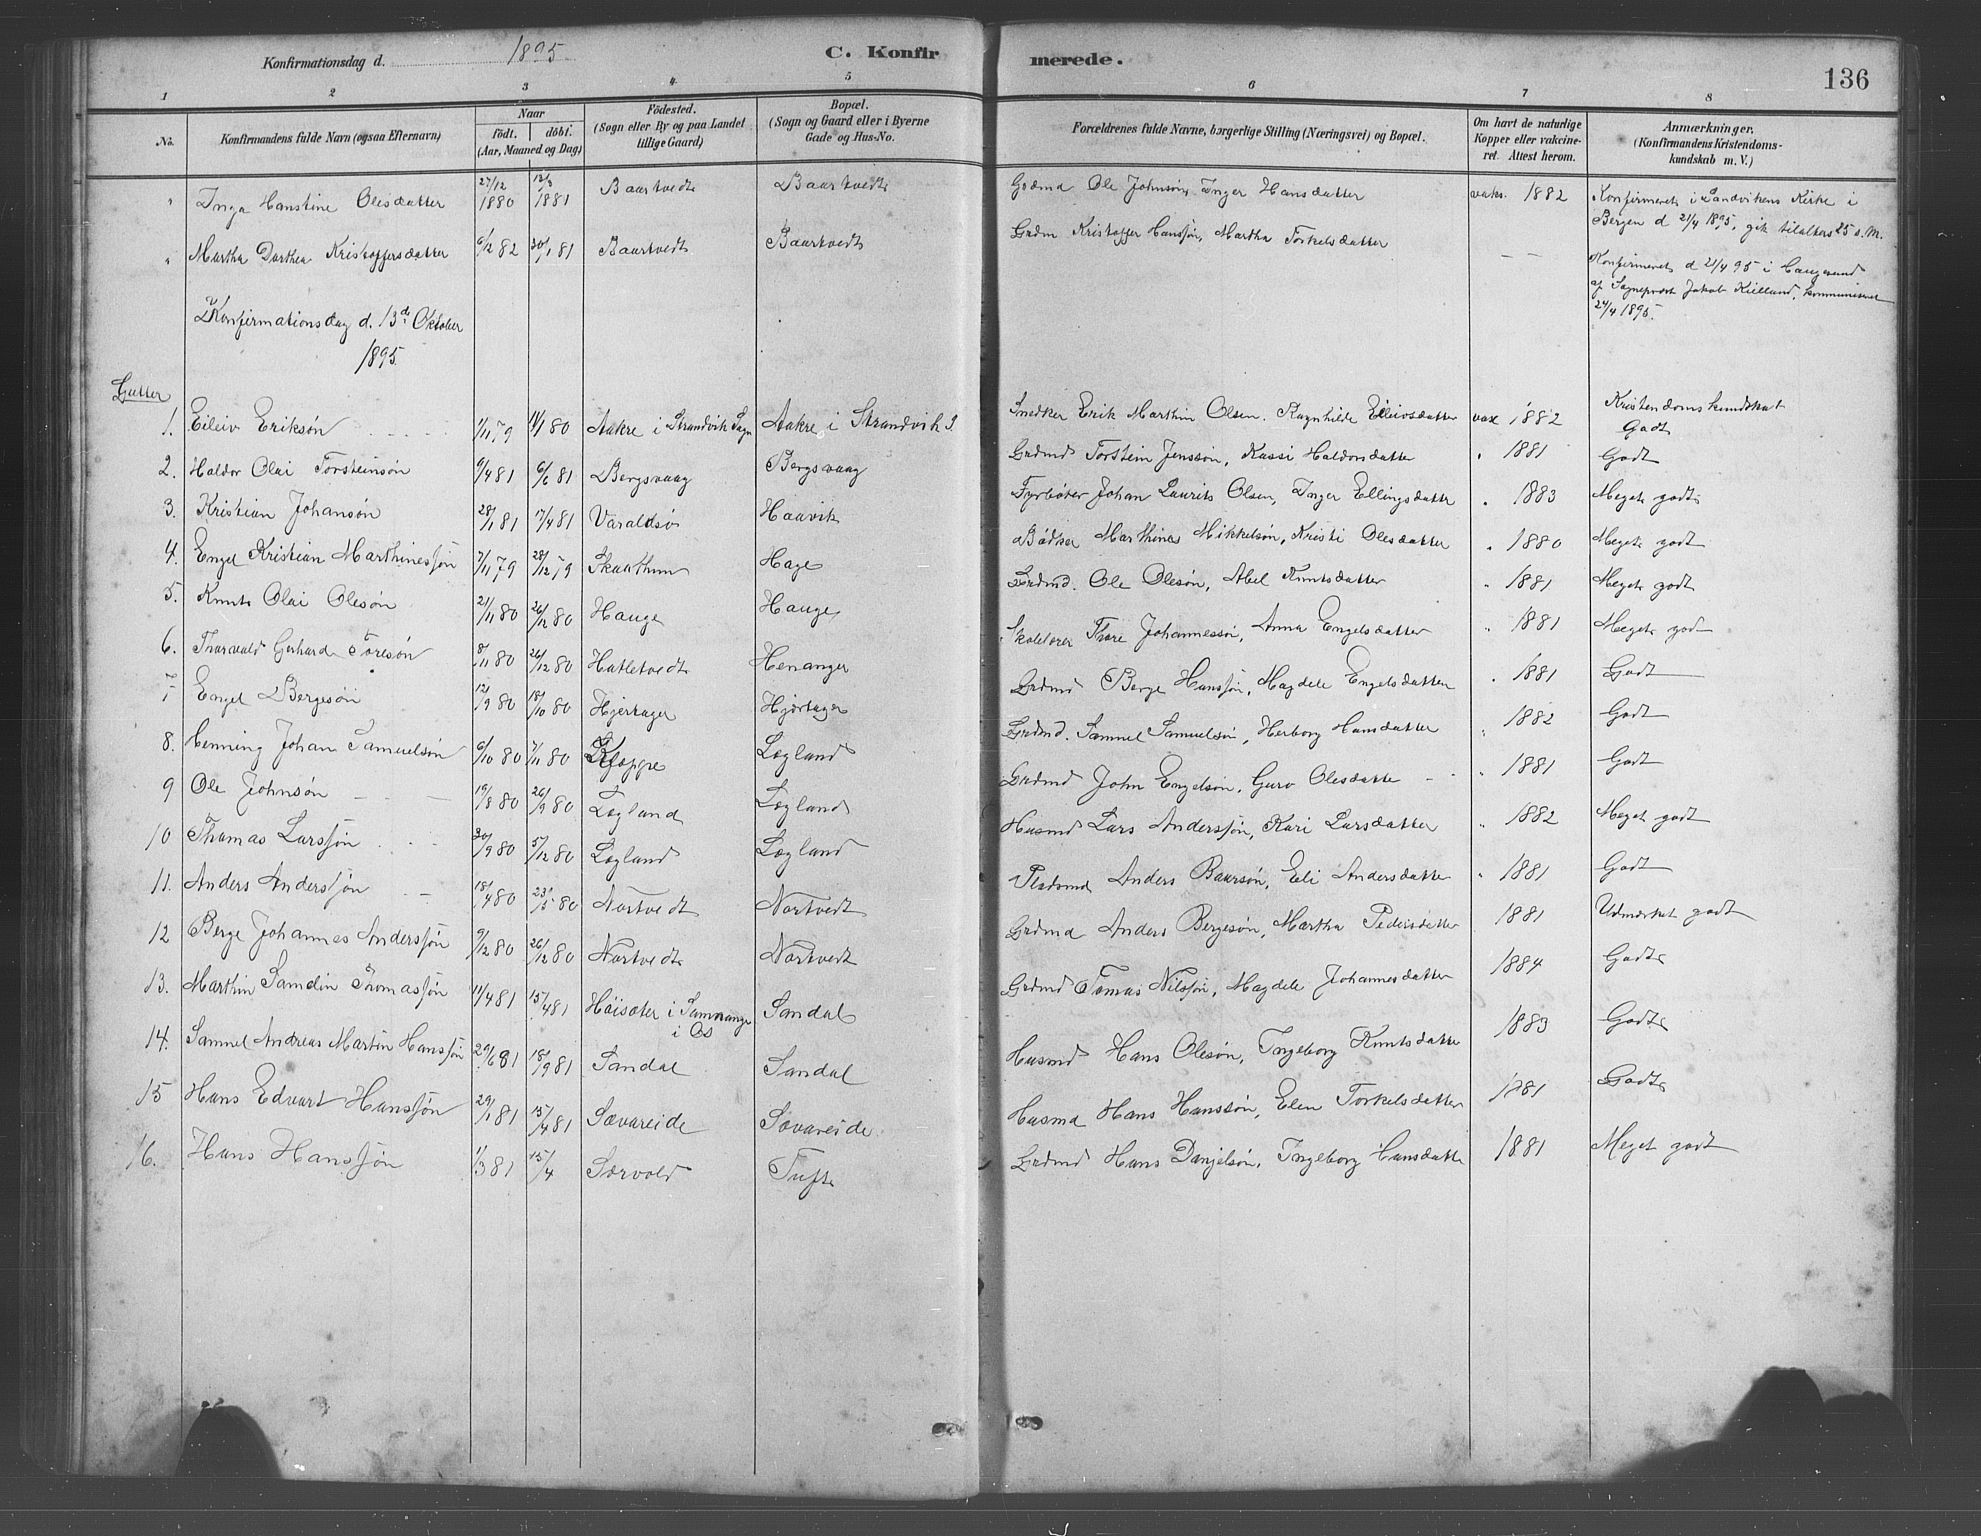 Konfirmationsdag d. 1895 C. Konfirmerede. 136
1 2 3 4 5 6 7 8
No. Konfirmandens fulde Navn (ogsaa Efternavn) Naar født. døbt. (Aar, Maaned og Dag) Fødested. (Sogn eller By og paa Landet tillige Gaard) Bopæl. (Sogn og Gaard eller i Byerne Gade og Hus-No. Forældrenes fulde Navne, borgerlige Stilling (Næringsvei) og Bopæl. Om havt de naturlige Kopper eller vakcineret. Attest herom. Anmærkninger. (Konfirmandens Kristendomskundskab m. V.)
" Inga Hanstine Olesdatter 27/12 1880 12/3 1881 Baartvedt Baartvedt Grdmd Ole Johnsøn, Inger Hansdatter vaks. 1882 Konfirmeret i Sandvikens Kirke i Bergen d 21/4 1895, gik tilalters 25 s. M.
" Martha Dorthea Kristoffersdatter 6/12 82 30/1 81 Baartvedt Baartvedt Grdm Kristoffer Hanssøn, Martha Torkelsdatter — — Konfirmeret d 21/4 95 i Haugesund af Sogneprest Jakob Kielland, kommuniseret 24/4 1895.
Konfirmationsdag d. 13de Oktober
1895.
Gutter
1. Eileiv Eriksøn 1/11 79 11/1 80 Aakre i Strandvik Sogn Aakre i Strandvik S Snedker Erik Marthin Olsen, Ragnhilde Eileivsdatter vax 1882 Kristendomskundskab Godt
2. Haldor Olai Torsteinsøn 6/4 81 6/6 81 Bergsvaag Bergsvaag Grdmd Torstein Jenssøn, Kassi Haldorsdatter " 1881 Godt
3. Kristian Johansøn 28/1 81 17/4 81 Varaldsø Haavik Fyrbøter Johan Laurits Olsen, Inger Ellingsdatter " 1883 Meget godt
4. Engel Kristian Marthinessøn 7/11 79 28/12 79 Skaathun Hage Bødker Marthines Mikkelsøn, Kristi Olesdatter " 1880 Meget godt
5. Knut Olai Olesøn 21/11 80 26/12 80 Hauge Hauge Grdmd. Ole Olesøn, Abel Knutsdatter " 1881 Meget godt
6. Thorvald Gerhard Toresøn 8/11 80 26/12 80 Hatletvedt Henanger Skolelærer Thore Johannessøn, Anna Engelsdatter " 1881 Meget godt
7. Engel Bergesøn 12/9 80 18/10 80 Hjertager Hjortager Grdmd Berge Hanssøn, Magdele Engelsdatter " 1881 Godt
8. Henning Johan Samuelsøn 6/10 80 7/11 80 Kleppe Lægland Grdmd. Samuel Samuelsøn, Herborg Hansdatter " 1882 Godt
9 Ole Johnsøn 19/8 80 26/9 80 Lægland Lægland Grdmd John Engelsøn, Guro Olesdatter " 1881 Godt
10 Thomas Larssøn 30/9 80 5/12 80 Lægland Lægland Husmd Lars Anderssøn, Kari Larsdatter " 1882 Meget godt
11. Anders Anderssøn 18/4 80 23/5 80 Nortvedt Nortvedt Pladsmd Anders Baarsøn, Eli Andersdatter " 1881 Godt
12 Berge Johannes Anderssøn 9/12 80 26/12 80 Nortvedt Nortvedt Grdmd Anders Bergesøn, Martha Pedersdatter 1881 Udmærket godt
13. Marthin Samdin Thomassøn 11/4 81 15/4 81 Høisæter i Samnanger i Os Sandal Grdmd Tomas Nilssøn, Magdele Johannesdatter 1884 Godt
14. Samuel Andreas Martin Hanssøn 29/6 81 18/9 81 Sandal Sandal Husmd Hans Olesøn, Ingeborg Knutsdatter 1883 Godt
15 Hans Edvart Hanssøn 29/1 81 15/4 81 Sævareide Sævareide Husmd Hans Hanssøn, Elen Torkelsdatter 1881 Godt
16. Hans Hanssøn 1/3 81 15/4 Sørvold Tufte Grdmd Hans Danjelsøn, Ingeborg Hansdatter 1881 Meget godt